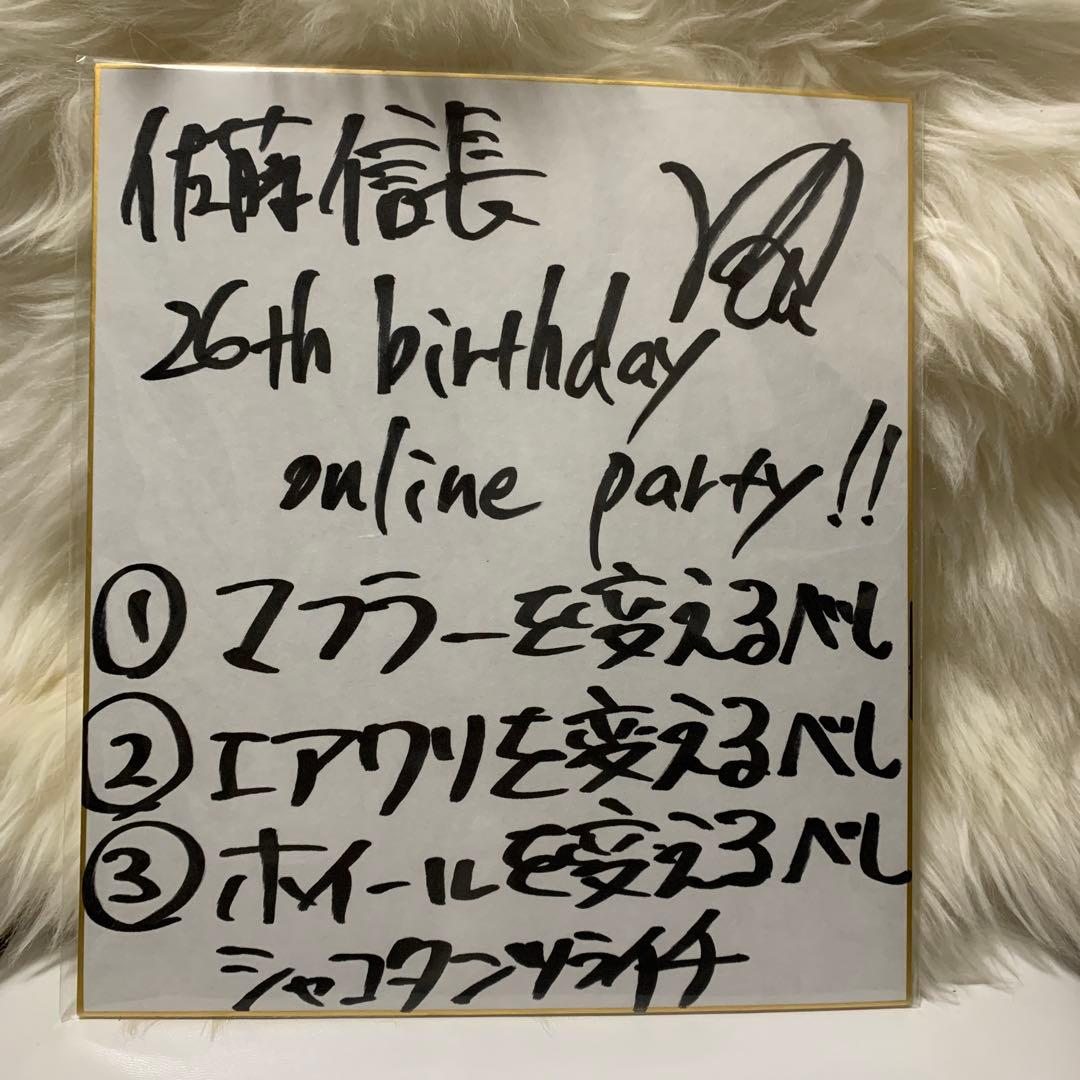 佐藤信長
26th birthday
online party!!
① マフラーを変えるべし
② エアクリを変えるべし
③ ホイールを変えるべし
シャコタンツライチ